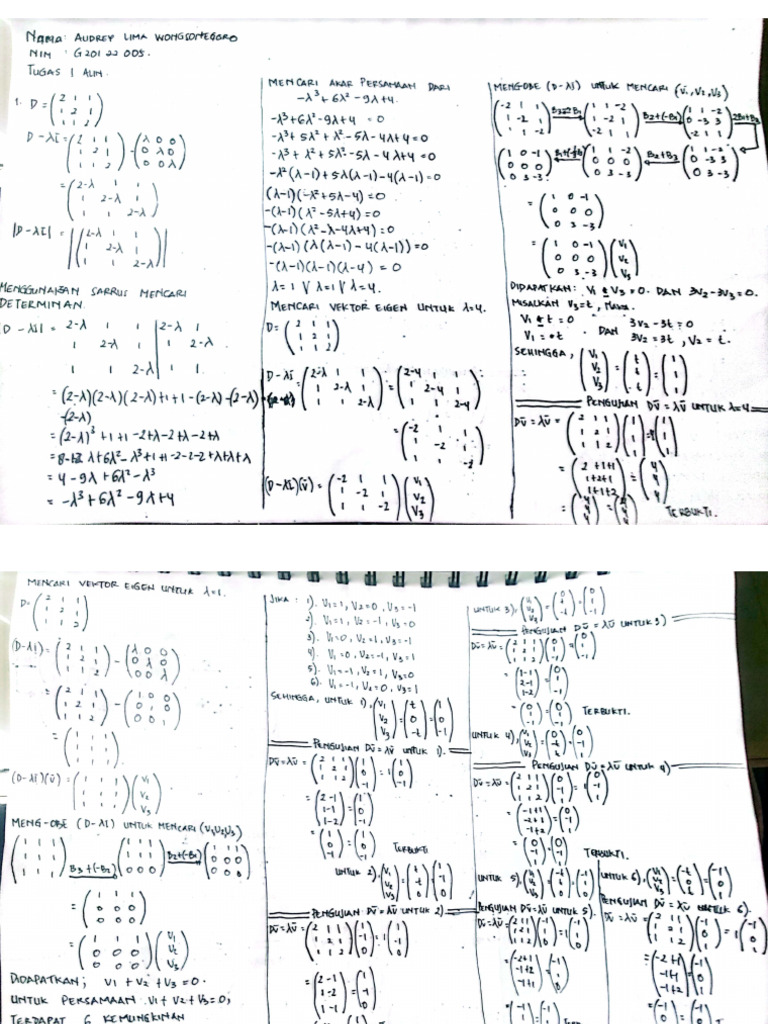 Nama: AUDREY LIMA WONGSONEGORO
NIM : G20122005.
TUGAS 1 ALIN.
1. D = (2 1 1
1 2 1
1 1 2)
D - λI = (2 1 1
1 2 1
1 1 2) - (λ 0 0
0 λ 0
0 0 λ)
= (2-λ 1 1
1 2-λ 1
1 1 2-λ)
|D - λI| = |(2-λ 1 1
1 2-λ 1
1 1 2-λ)|
MENGGUNAKAN SARRUS MENCARI
DETERMINAN.
D - λI = 2-λ 1 1 | 2-λ 1
1 2-λ 1 | 1 2-λ
1 1 2-λ | 1 1
= (2-λ)(2-λ)(2-λ)+1+1-(2-λ)-(2-λ)-
-(2-λ)
= (2-λ)³+1+1-2+λ-2+λ-2+λ
= 8-12λ+6λ²-λ³+1+1-2-2-2+λ+λ+λ
= 4-9λ+6λ²-λ³
= -λ³+6λ²-9λ+4
MENCARI AKAR PERSAMAAN DARI
-λ³+6λ²-9λ+4.
-λ³+6λ²-9λ+4 = 0
-λ³+5λ²+λ²-5λ-4λ+4=0
-λ³+λ²+5λ²-5λ-4λ+4=0
-λ²(λ-1)+5λ(λ-1)-4(λ-1)=0
(λ-1)(-λ²+5λ-4)=0
-(λ-1)(λ²-5λ+4)=0
-(λ-1)(λ²-λ-4λ+4)=0
-(λ-1)(λ(λ-1)-4(λ-1))=0
-(λ-1)(λ-1)(λ-4)=0
λ=1 V λ=1 V λ=4.
MENCARI VEKTOR EIGEN UNTUK λ=4.
D = (2 1 1
1 2 1
1 1 2)
D-λI = (2-λ 1 1
1 2-λ 1
1 1 2-λ) = (2-4 1 1
1 2-4 1
1 1 2-4)
= (-2 1 1
1 -2 1
1 1 -2)
(D-λI)(v̄) = (-2 1 1
1 -2 1
1 1 -2)(V1
V2
V3)
MENGOBE (D-λI) UNTUK MENCARI (V1,V2,V3)
(-2 1 1
1 -2 1
1 1 -2) (1 1 -2
1 -2 1
-2 1 1) B2+(-B1) (1 1 -2
0 -3 3
-2 1 1) 2B1+B3
(1 0 -1
0 0 0
0 3 -3) (1 1 -2
0 0 0
0 3 -3) B2+B3 (1 1 -2
0 -3 3
0 3 -3)
= (1 0 -1
0 0 0
0 3 -3)
= (1 0 -1
0 0 0
0 3 -3)(V1
V2
V3)
DIDAPATKAN: V1 - V3=0. DAN 3V2-3V3=0.
MISALKAN V3=t, MAKA.
V1 - t = 0 DAN 3V2-3t=0
V1 = t. 3V2=3t, V2=t.
SEHINGGA, (V1
V2
V3) = (t
t
t) = (1
1
1)
PENGUJIAN Dv̄=λv̄ UNTUK λ=4
Dv̄=λv̄ = (2 1 1
1 2 1
1 1 2)(1
1
1) = (1
1
1)
= (2+1+1
1+2+1
1+1+2) = (4
4
4)
= (4
4
4) = (4
4
4) TERBUKTI.
MENCARI VEKTOR EIGEN UNTUK λ=1.
D = (2 1 1
1 2 1
1 1 2)
(D-λI) = (2 1 1
1 2 1
1 1 2) - (λ 0 0
0 λ 0
0 0 λ)
= (2 1 1
1 2 1
1 1 2) - (1 0 0
0 1 0
0 0 1)
= (1 1 1
1 1 1
1 1 1)
(D-λI)(v̄) = (1 1 1
1 1 1
1 1 1)(V1
V2
V3)
MENG-OBE (D-λI) UNTUK MENCARI (V1,V2,V3)
(1 1 1
1 1 1
1 1 1) B3+(-B2) (1 1 1
1 1 1
0 0 0) B2+(-B1) (1 1 1
0 0 0
0 0 0)
= (1 1 1
0 0 0
0 0 0)
= (1 1 1
0 0 0
0 0 0)(V1
V2
V3)
DIDAPATKAN; V1+V2+V3=0.
UNTUK PERSAMAAN V1+V2+V3=0;
TERDAPAT 6 KEMUNGKINAN
JIKA : 1). V1=1, V2=0, V3=-1
2). V1=1, V2=-1, V3=0
3). V1=0, V2=1, V3=-1
4). V1=0, V2=-1, V3=1
5). V1=-1, V2=1, V3=0
6). V1=-1, V2=0, V3=1
SEHINGGA, UNTUK 1). (V1
V2
V3) = (t
0
-t) = (1
0
-1)
PENGUJIAN Dv̄=λv̄ UNTUK 1).
Dv̄=λv̄ = (2 1 1
1 2 1
1 1 2)(1
0
-1) = 1(1
0
-1)
= (2-1
1-1
1-2) = (1
0
-1)
= (1
0
-1) = (1
0
-1) TERBUKTI
UNTUK 2). (V1
V2
V3) = (t
-t
0) = (1
-1
0)
PENGUJIAN Dv̄=λv̄ UNTUK 2)
Dv̄=λv̄ = (2 1 1
1 2 1
1 1 2)(1
-1
0) = 1(1
-1
0)
= (2-1
1-2
1-1) = (1
-1
0)
UNTUK 3). (V1
V2
V3) = (0
t
-t) = (0
1
-1)
PENGUJIAN Dv̄=λv̄ UNTUK 3)
Dv̄=λv̄ = (2 1 1
1 2 1
1 1 2)(0
1
-1) = (0
1
-1)
= (1-1
2-1
1-2) = (0
1
-1)
= (0
1
-1) = (0
1
-1) TERBUKTI.
UNTUK 4). (V1
V2
V3) = (0
-t
t) = (0
-1
1)
PENGUJIAN Dv̄=λv̄ UNTUK 4)
Dv̄=λv̄ = (2 1 1
1 2 1
1 1 2)(0
-1
1) = 1(0
-1
1)
= (-1+1
-2+1
-1+2) = (0
-1
1)
= (0
-1
1) = (0
-1
1) TERBUKTI.
UNTUK 5). (V1
V2
V3) = (-t
t
0) = (-1
1
0)
PENGUJIAN Dv̄=λv̄ UNTUK 5).
Dv̄=λv̄ = (2 1 1
1 2 1
1 1 2)(-1
1
0) = (-1
1
0)
= (-2+1
-1+2
-1+1) = (-1
1
0)
UNTUK 6). (V1
V2
V3) = (-t
0
t) = (-1
0
1)
PENGUJIAN Dv̄=λv̄ UNTUK 6).
Dv̄=λv̄ = (2 1 1
1 2 1
1 1 2)(-1
0
1) = 1(-1
0
1)
= (-2+1
-1+1
-1+2) = (-1
0
1)